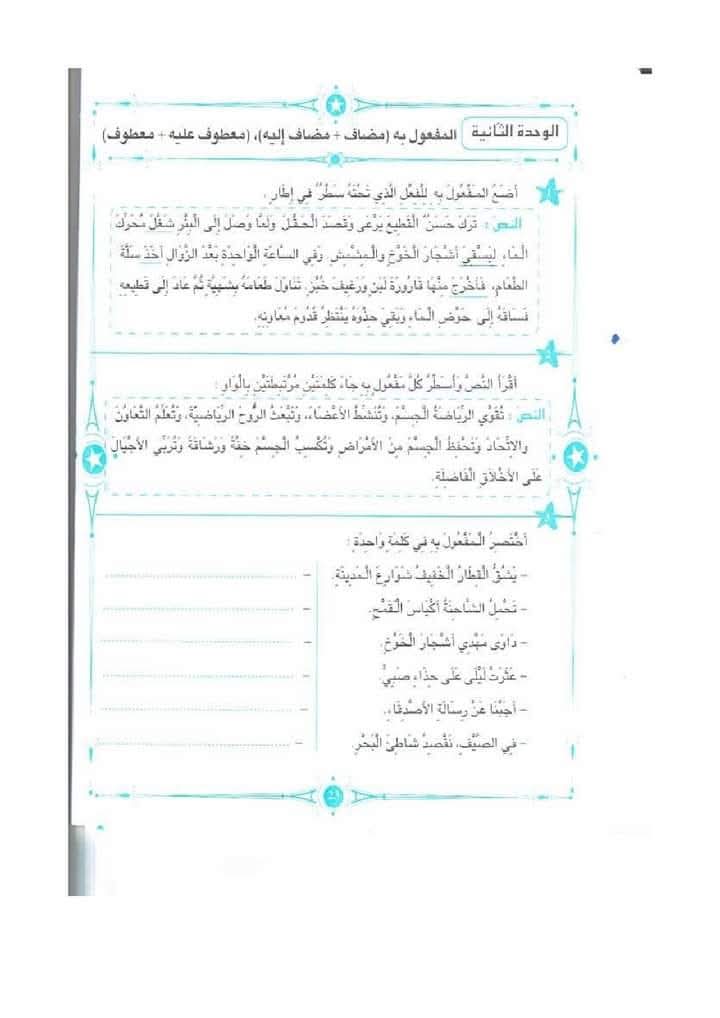 الوحدة الثانية المفعول به (مضاف + مضاف إليه)، (معطوف عليه + معطوف)
1
أضَعُ المَفْعُولَ بِهِ لِلْفِعْلِ الَّذِي تَحْتَهُ سَطْرٌ فِي إِطَارٍ :
النص : تَرَكَ حَسَنٌ القَطِيعَ يَرْعَى وَقَصَدَ الْحَقْلَ وَلَمَّا وَصَلَ إِلَى الْبِئْرِ شَغَّلَ مُحَرِّكَ
الْمَاءِ، لِيَسْقِيَ أَشْجَارَ الْخَوْخِ وَالْمِشْمِشِ. وَفِي السَّاعَةِ الْوَاحِدَةِ بَعْدَ الزَّوَالِ أَخَذَ سَلَّةَ
الطَّعَامِ، فَأَخْرَجَ مِنْهَا قَارُورَةَ لَبَنٍ وَرَغِيفَ خُبْزٍ. تَنَاوَلَ طَعَامَهُ بِشَهِيَّةٍ ثُمَّ عَادَ إِلَى قَطِيعِهِ
فَسَاقَهُ إِلَى حَوْضِ الْمَاءِ وَبَقِيَ حِذْوَهُ يَنْتَظِرُ قُدُومَ مُعَاوِنِهِ.
2
أَقْرَأُ النَّصَّ وَأُسَطِّرُ كُلَّ مَفْعُولٍ بِهِ جَاءَ كَلِمَتَيْنِ مُرْتَبِطَتَيْنِ بِالْوَاوِ :
النص : تُقَوِّي الرِّيَاضَةُ الْجِسْمَ، وَتُنَشِّطُ الأَعْضَاءَ، وَتَبْعَثُ الرُّوحَ الرِّيَاضِيَّةَ، وَتُعَلِّمُ التَّعَاوُنَ
والاِتِّحَادَ وَتَحْفَظُ الْجِسْمَ مِنَ الأَمْرَاضِ وَتُكْسِبُ الْجِسْمَ خِفَّةً وَرَشَاقَةً وَتُرَبِّي الأَجْيَالَ
عَلَى الأَخْلَاقِ الْفَاضِلَةِ.
أَخْتَصِرُ الْمَفْعُولَ بِهِ فِي كَلِمَةٍ وَاحِدَةٍ :
- يَشُقُّ الْقِطَارُ الْخَفِيفُ شَوَارِعَ الْمَدِينَةِ. - ..............................
- تَحْمِلُ الشَّاحِنَةُ أَكْيَاسَ الْقَمْحِ. - ..............................
- دَاوَى مَهْدِي أَشْجَارَ الْخَوْخِ. - ..............................
- عَثَرَتْ لَيْلَى عَلَى حِذَاءِ صَبِيٍّ. - ..............................
- أَجَبْنَا عَنْ رِسَالَةِ الأَصْدِقَاءِ. - ..............................
- فِي الصَّيْفِ، نَقْصِدُ شَاطِئَ الْبَحْرِ. - ..............................
23